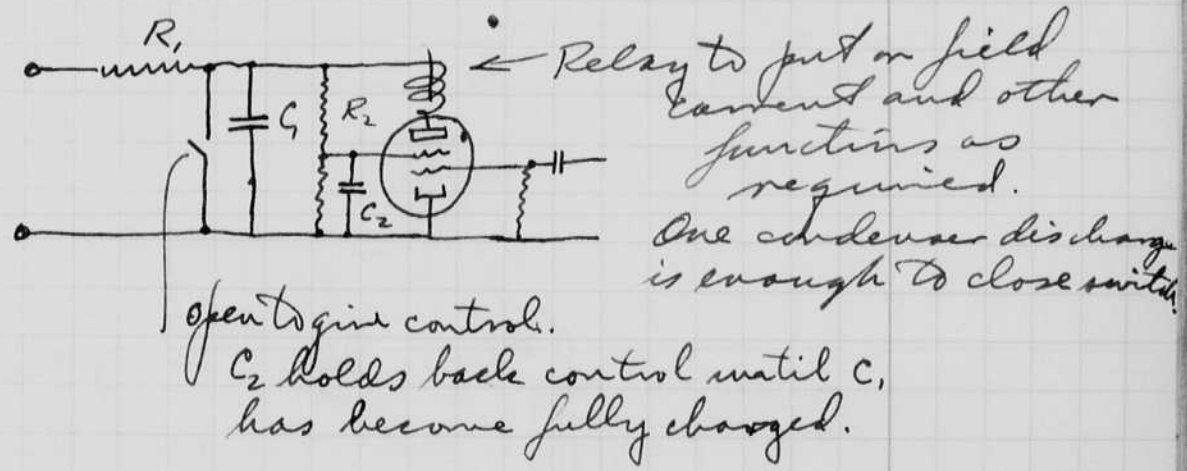 R₁
C₁
R₂
C₂
Relay to put on field
current and other
functions as
required.
One condenser discharge
is enough to close switch.
open to give control.
C₂ holds back control until C₁
has become fully charged.